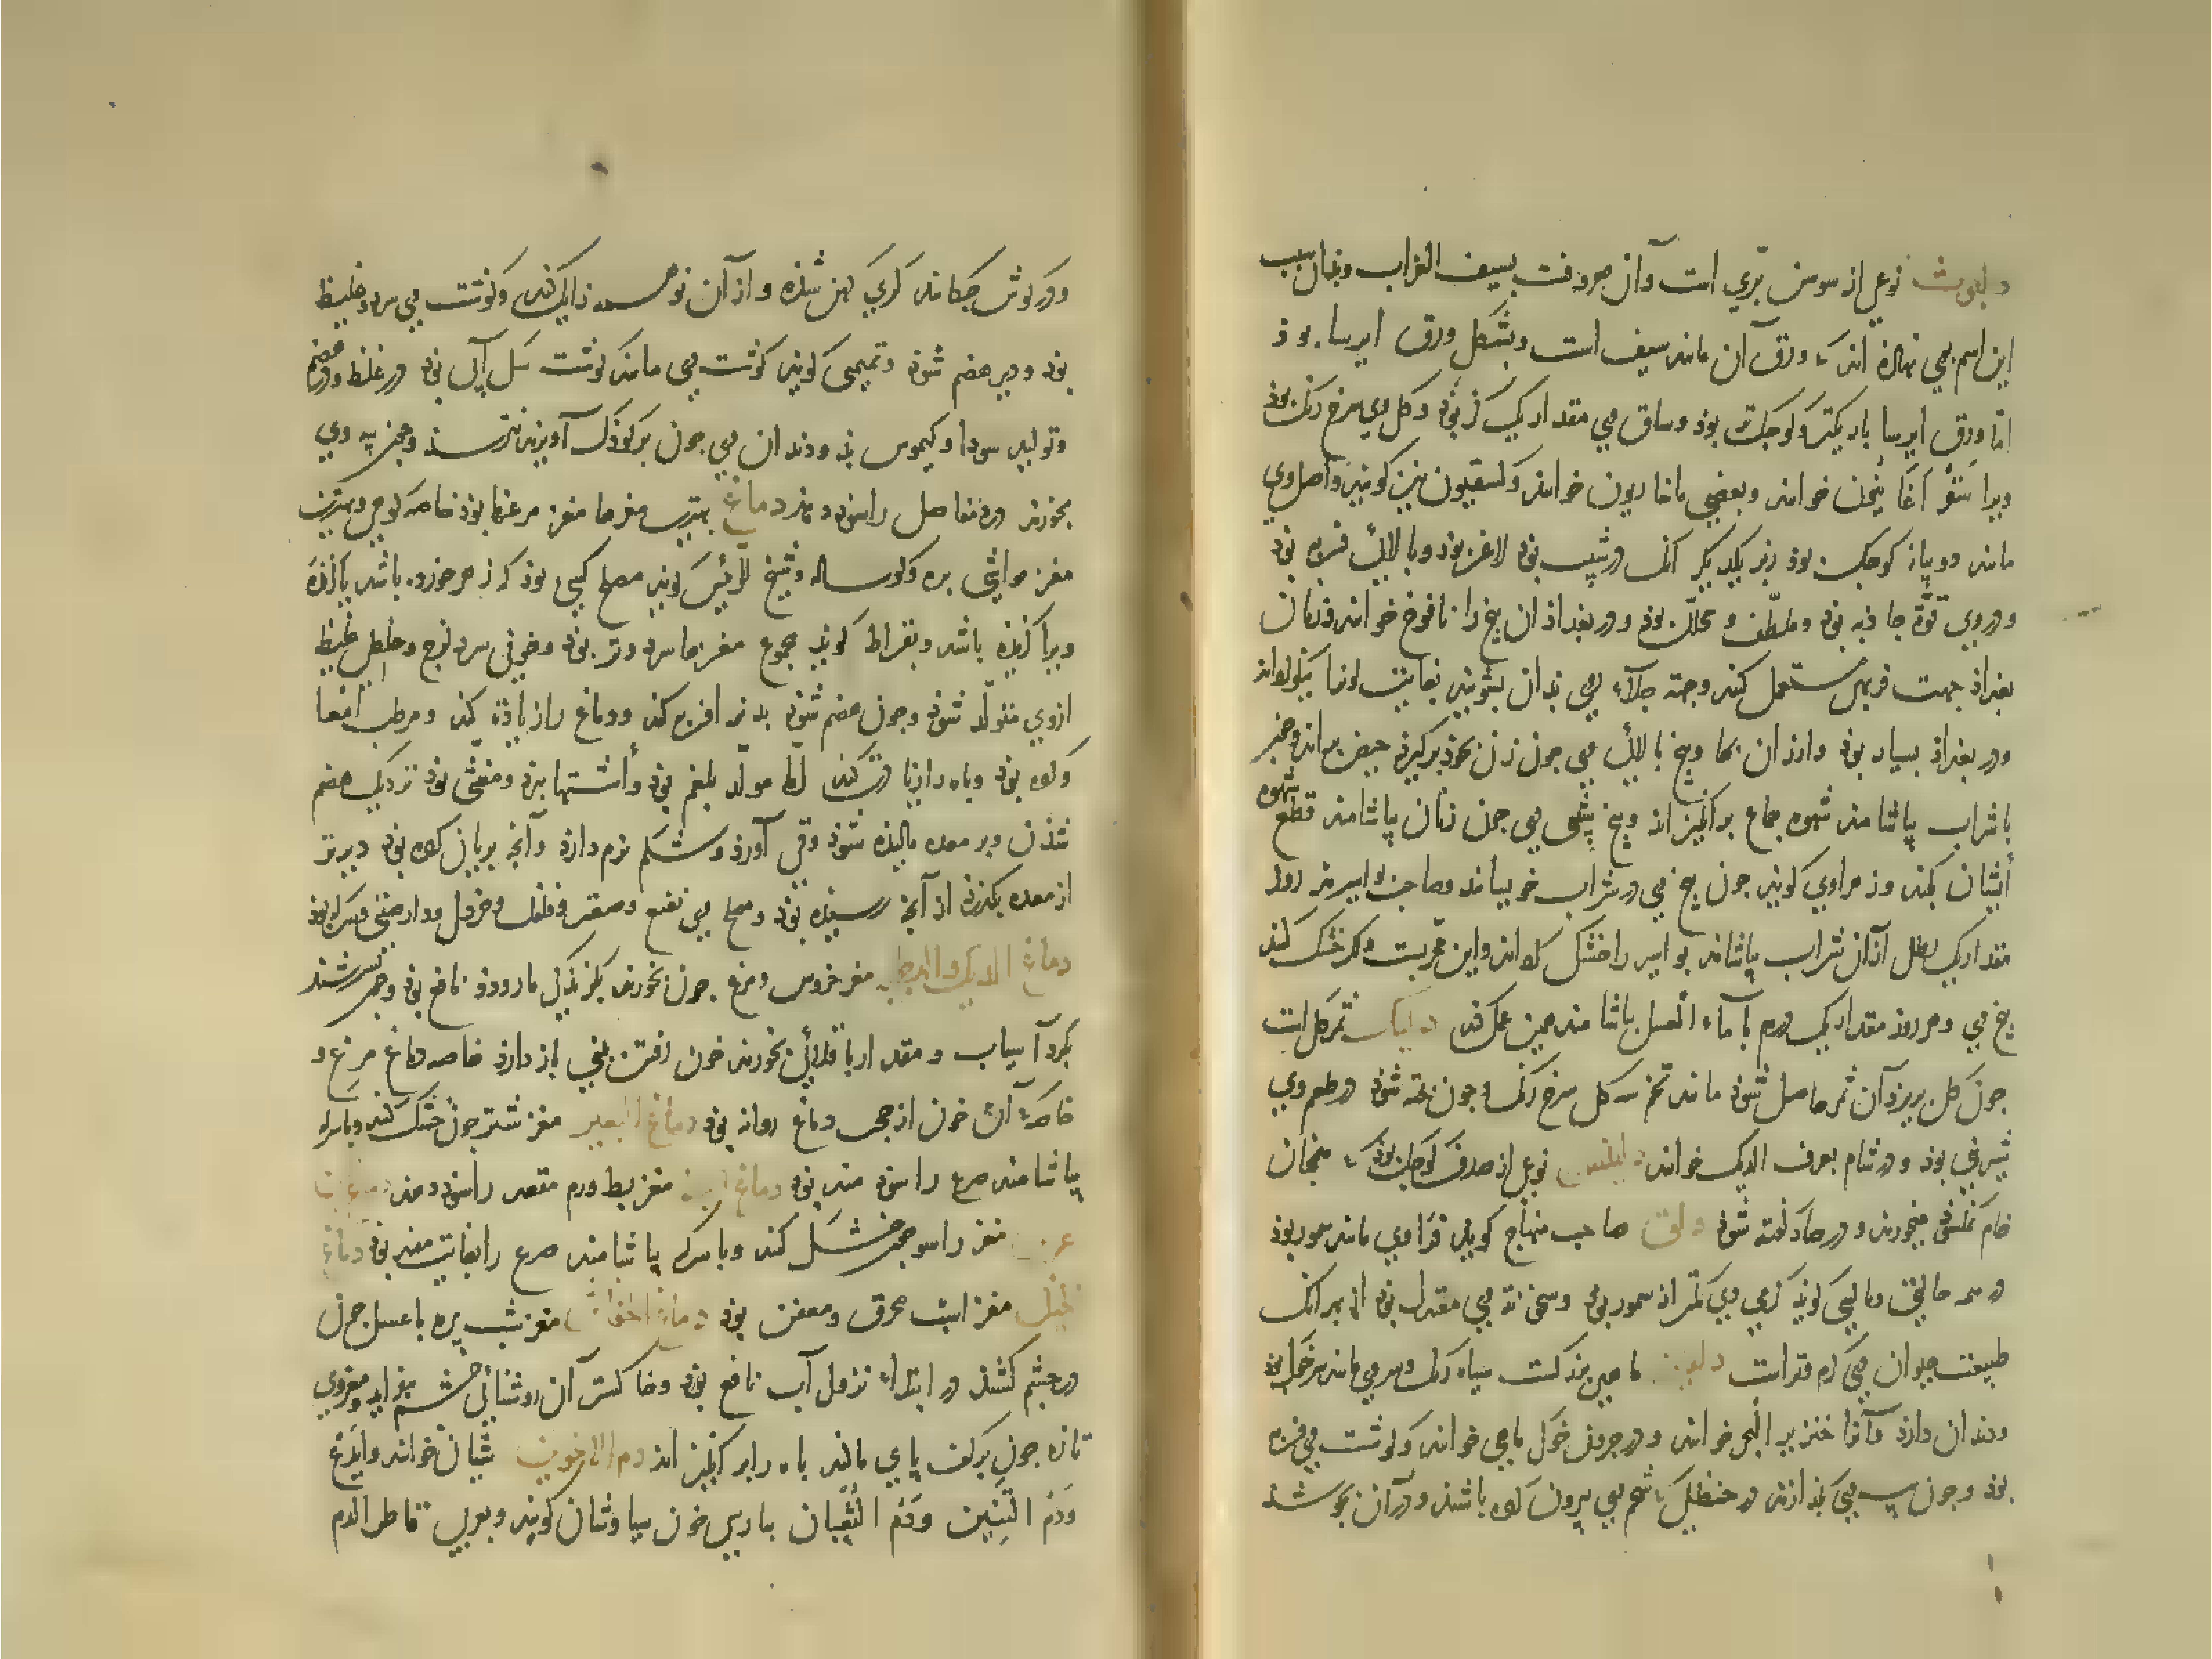 دلبوث نوعی از سوسن بری است وآن معروفست بسیف الغراب وبدان سبب
این اسم بوی نهاده اند که ورق آن مانند سیف است وبشکل ورق ایرسا بوذ
اما ورق ایرسا باریکتر وکوجکتر بوذ وساق وی مقدار یک کز بوذ وکل وی سرخ رنک بوذ
ویرا خوانند وبعضی ماخاریون خوانند وکسیفیون نیز کویند واصل وی
مانند دو پیاز کوجک بوذ زبر یکدیکر آنک در شیب بوذ لاغر بوذ وبالایین فربه بوذ
ودر وی قوة جاذبه بوذ وملطف ومحلل بوذ ودر بغداذ آن بیخ را نافوخ خوانند وزنان
بغداذ جهت فربهی مستعمل کنند وجهة جلاء روی بذان بشویند بغایت لونرا نیکو کرداند
ودر بغداذ بسیار بوذ وبیخ بالایین وی جون زن بخوذ برکیرد حیض براند وجون
با شراب بیاشامند شهوه جماع برانکیزاند وبیخ شیبی وی جون زنان بیاشامند قطع شهوه
ایشان بکند وزهراوی کویند جون بیخ وی در شراب خویسانند وصاحب بواسیر هر روز
مقدار یک رطل از آن شراب بیاشامد بواسیر را خشک کرداند واین مجربست واکر خشک کنند
بیخ وی وهر روز مقدار یک درم با ماء العسل بیاشامند همین عمل کند دلیک ثمر کل است
جون کل بریزد آن ثمر حاصل شوذ مانند تخم کل سرخ رنک وجون پخته شوذ در طعم وی
شیرینی بوذ ودر شام بصرف الدیک خوانند دلینس نوعی از صدف کوجک بوذ که همجنان
خام نمکسوذ میخورند ودر صاد کفته شوذ دلق صاحب منهاج کویذ فراوی مانند سمور بوذ
در همه حالتی ودر کویند کرمی وی کمتر از سمور بوذ وسخونة وی معتدل بوذ از بهر آنک
طبیعت حیوان وی کرم وتر است دلفین ماهی بزرکست سیاه رنک وسر وی مانند سر خوک بوذ
ودندان دارد وآنرا خنزیر البحر خوانند ودر جرون خوک ماهی خوانند وکوشت وی فربه
بوذ وجون پیه وی بکذازند در حنظلی که شحم وی بیرون کرده باشند ودر آن بجوشند
ودر کوش جکانند کری کهن شذه واز آن نو زایل کند وکوشت وی سرد وغلیظ
بوذ ودیر هضم شوذ وتمیمی کویند کوشت وی مانند کوشت آبی بوذ در غلظ ودیر هضم
وتولید سودا وکیموس بد ودندان وی جون بر کوذک آویزند نترسد وجون پیه وی
بخورند درد مفاصل را سوذ دهد دماغ بهترین مغزها مغز مرغها بوذ خاصه کوهی وبهترین
مغز مواشی بره وکوساله وشیخ الرئیس کویند مصلح کسی بوذ که زهر خورده باشد یا کزنده
ویرا کزیده باشد وبقراط کویذ مجموع مغزها سرد وتر بوذ وخونی سرد لزج وخلطی غلیظ
از وی متولد شوذ وجون هضم شوذ بدنرا فربه کند ودماغ را زیاذت کند ومرطب امعا
وکرده بوذ وباه را زیاذت کند اما مولد بلغم بوذ واشتها ببرد ومغثی بوذ نزدیک هضم
شذن وبر معده مالیذه شوذ وقی آورذ وشکم نرم دارذ وآنج بریان کرده بوذ دیرتر
از معده بکذرد از آنج رسیده بوذ ومصلح وی نعنع وصعتر وفلفل وخردل ودارصینی وسرکه بوذ
دماغ الدیک والدجاج مغز خروس ومرغ جون بخورند کزندکی مار ورذ نافع بوذ وجون بسرشند
بکرد آسیاب ومقدار باقلائی بخورند خون رفتن بینی باز دارد خاصه دماغ مرغ و
خاصه آنک خون از حجب دماغ روانه بوذ دماغ البعیر مغز شتر جون خشک کنند وبا سرکه
بیاشامند صرع را سوذ مند بوذ دماغ البط مغز بط ورم مقعد را سوذ دهد دماغ ابن
عرس مغز راسو جون خشک کنند وبا سرکه بیاشامند صرع را بغایت مفید بوذ دماغ
الخیل مغز اسب محرق ومعفن بوذ دماغ الخفاش مغز شب پره با عسل جون
در جشم کشند در ابتداء نزول آب نافع بوذ وخاکستر آن روشنائی جشم بیفزاید ومغز وی
تازه جون بر کف پای مالند باه را برانکیزاند دم الاخوین شیان خوانند وایدع
ودم التنین ودم الثعبان بپارسی خون سیاوشان کویند وبعربی قاطر الدم